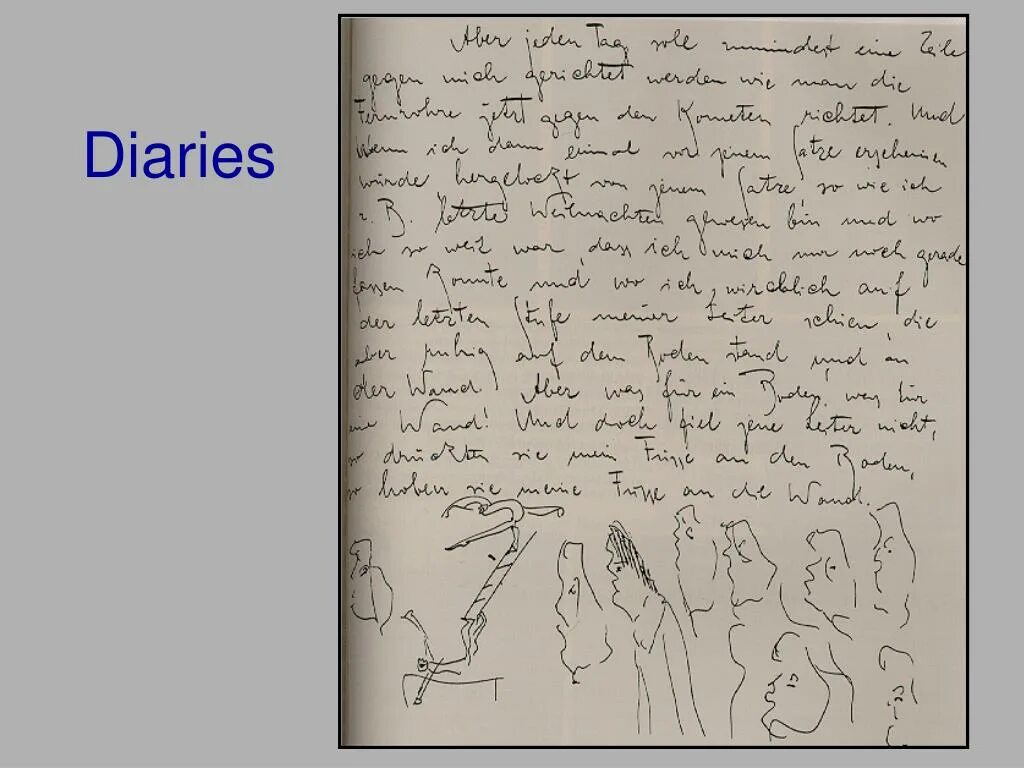 Diaries
Aber jeden Tag soll zumindest eine Zeile
gegen mich gerichtet werden wie man die
Fernrohre jetzt gegen den Kometen richtet. Und
wenn ich dann einmal vor jenem Satze erscheinen
würde hergelockt von jenem Satze, so wie ich
z. B. letzte Weihnachten gewesen bin und wo
ich so weit war, dass ich mich nur noch gerade
fassen konnte und wo ich wirklich auf
der letzten Stufe meiner Leiter schien, die
aber ruhig auf dem Boden stand und an
der Wand. Aber was für ein Boden, was für
eine Wand! Und doch fiel jene Leiter nicht,
so drückten sie meine Füsse an den Boden,
so hoben sie meine Füsse an die Wand.